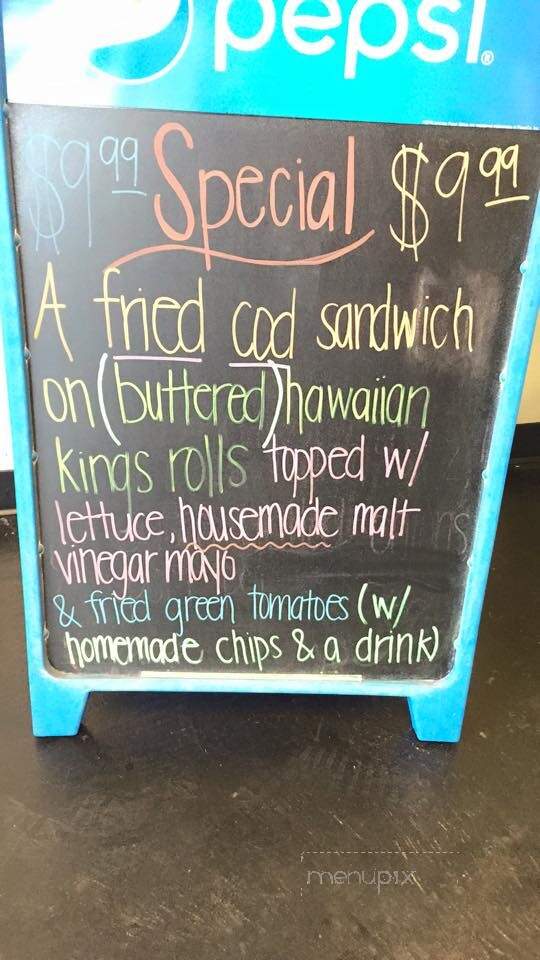 pepsi®
$9.99 Special $9.99
A fried cod sandwich
on (buttered) hawaiian
kings rolls topped w/
lettuce, housemade malt
vinegar mayo
& fried green tomatoes (w/
homemade chips & a drink)
menupix